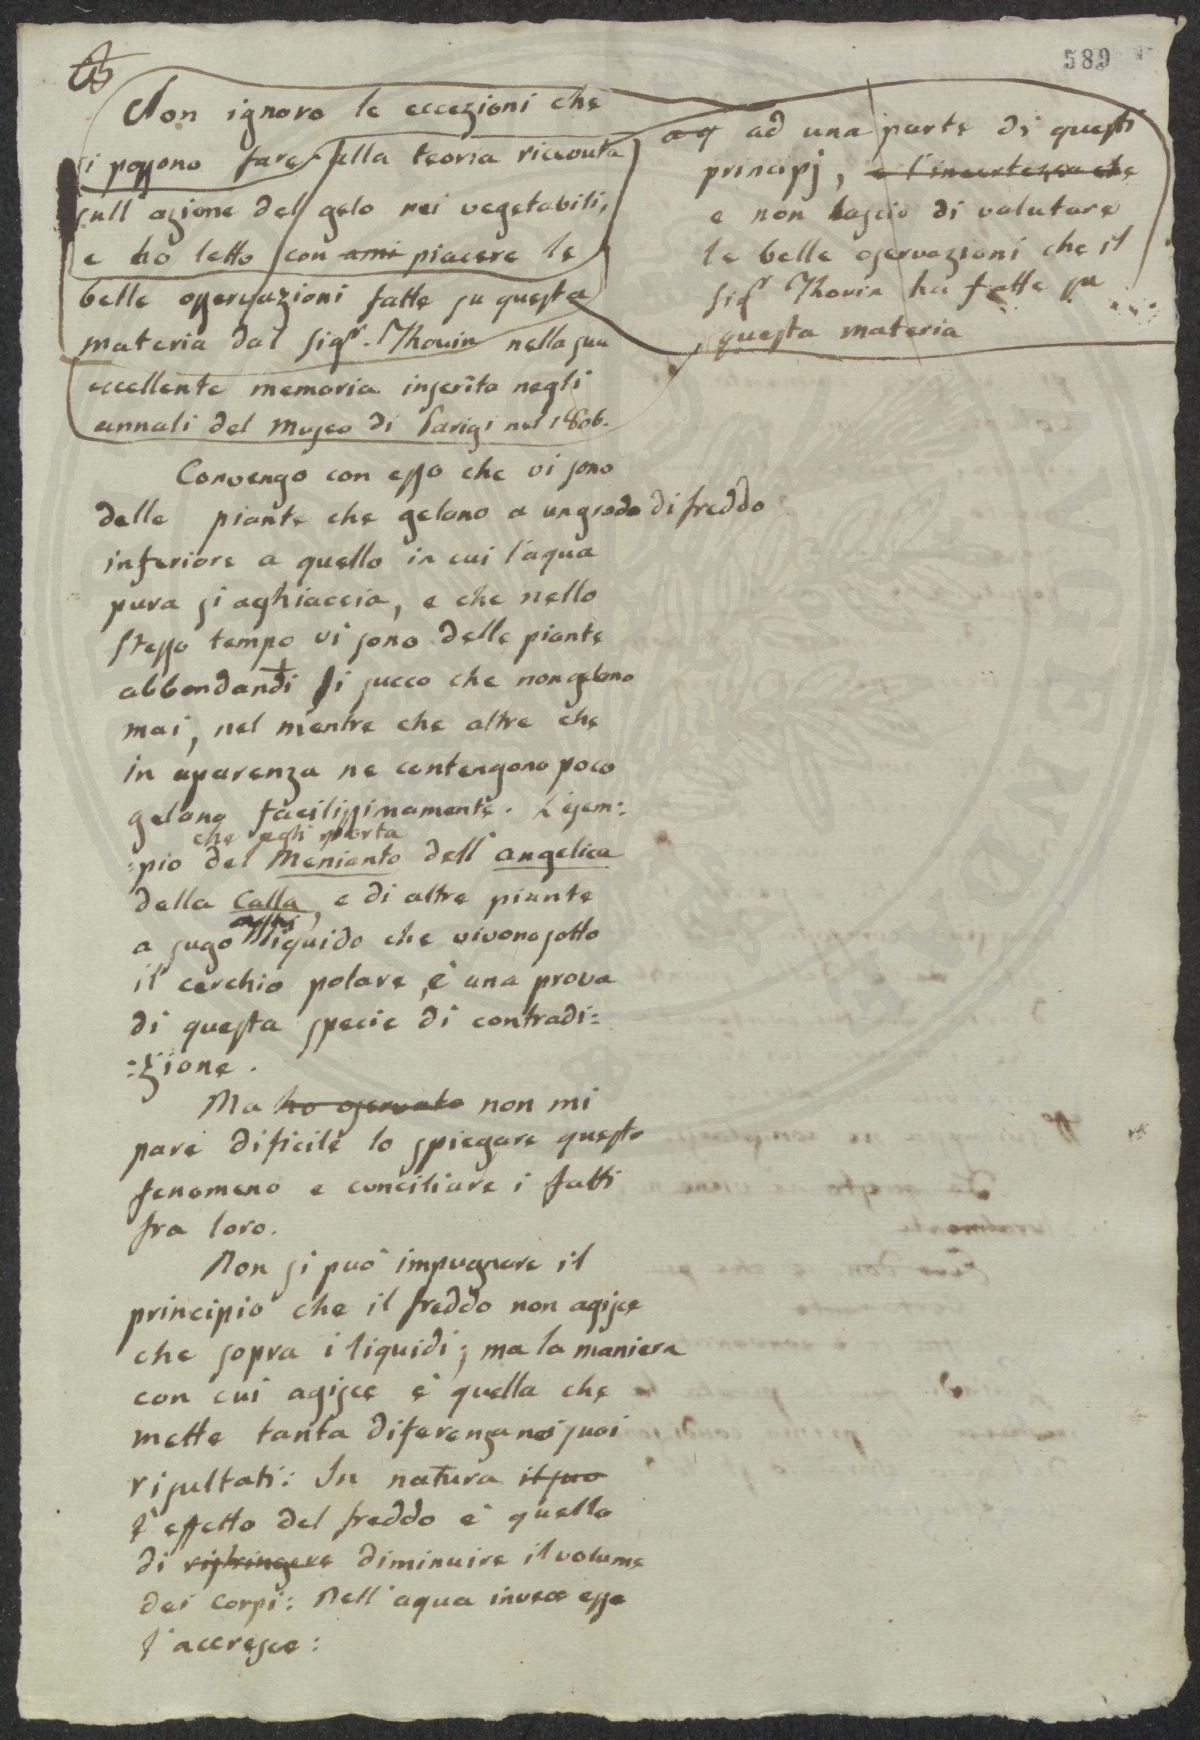 589
Non ignoro le eccezioni che
si possono fare alla teoria ricevuta
sull azione del gelo nei vegetabili,
e ho letto con ami piacere le
belle osservazioni fatte su questa
materia dal sigr. Thouin nella sua
eccellente memoria inserita negli
annali del Museo di Parigi nel 1806.
ad una parte di questi
principj, e l'incertezza che
e non lascio di valutare
le belle oservazioni che il
sigr Thouin ha fatte su
questa materia
Convengo con esso che vi sono
delle piante che gelano a un grado di freddo
inferiore a quello in cui l'aqua
pura si aghiaccia, e che nello
stesso tempo vi sono delle piante
abbondanti di succo che non gelano
mai, nel mentre che altre che
in aparenza ne contengono poco
gelano facilissimamente. L'esem:
che egli porta
:pio del Menianto dell'angelica
della Calla, e di altre piante
a sugo liquido che vivono sotto
il cerchio polare, è una prova
di questa specie di contradi=
=zione.
Ma ho oservato non mi
pare dificile lo spiegare questo
fenomeno e conciliare i fatti
fra loro.
Non si può impugnare il
principio che il freddo non agisce
che sopra i liquidi; ma la maniera
con cui agisce è quella che
mette tanta diferenza nei suoi
risultati: In natura il suo
l'effetto del freddo è quello
di ristringere diminuire il volume
dei corpi: Nell'aqua invece esso
l'accresce: